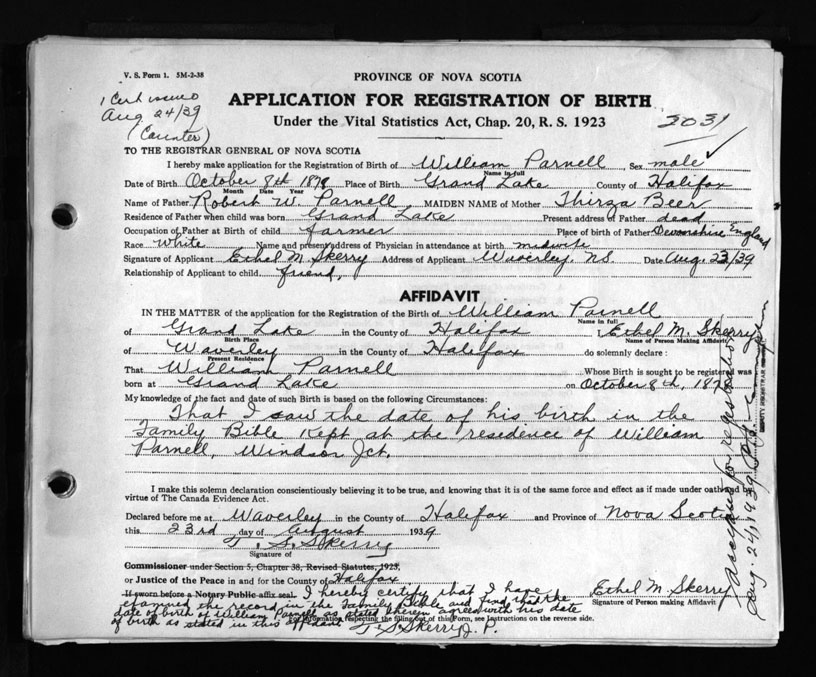 V. S. Form 1. 5M-2-38
PROVINCE OF NOVA SCOTIA
1 Cert issued
Aug 24/39
(Counter)
APPLICATION FOR REGISTRATION OF BIRTH
Under the Vital Statistics Act, Chap. 20, R. S. 1923
3031
TO THE REGISTRAR GENERAL OF NOVA SCOTIA
I hereby make application for the Registration of Birth of William Parnell, Sex male
Name in full
Date of Birth October 8th 1878 Place of Birth Grand Lake County of Halifax
Month Date Year
Name of Father Robert W. Parnell, MAIDEN NAME of Mother Thirza Beer
Residence of Father when child was born Grand Lake Present address of Father dead
Occupation of Father at Birth of child farmer Place of birth of Father Devonshire England
Race White Name and present address of Physician in attendance at birth midwife
Signature of Applicant Ethel M. Skerry Address of Applicant Waverley, N.S. Date Aug. 23/39
Relationship of Applicant to child friend,
AFFIDAVIT
IN THE MATTER of the application for the Registration of the Birth of William Parnell
Name in full
of Grand Lake in the County of Halifax I, Ethel M. Skerry
Birth Place Name of Person Making Affidavit
of Waverley in the County of Halifax do solemnly declare:
Present Residence
That William Parnell Whose Birth is sought to be registered was
born at Grand Lake on October 8th, 1878
My knowledge of the fact and date of such Birth is based on the following Circumstances:
That I saw the date of his birth in the
Family Bible kept at the residence of William
Parnell, Windsor Jct.
I make this solemn declaration conscientiously believing it to be true, and knowing that it is of the same force and effect as if made under oath and by
virtue of The Canada Evidence Act.
Declared before me at Waverley in the County of Halifax and Province of Nova Scotia
this 23rd day of August 1939
T. S. Skerry
Signature of
Commissioner under Section 5, Chapter 38, Revised Statutes, 1923,
or Justice of the Peace in and for the County of Halifax
If sworn before a Notary Public affix seal. I hereby certify that I have Ethel M. Skerry
Signature of Person making Affidavit
examined the record in the Family Bible and find that the
date of birth of William Parnell as stated therein agrees with his date
For information respecting the filling out of this Form, see Instructions on the reverse side.
of birth as stated in this affidavit T. S. Skerry J. P.
Accepted for registration
Aug. 24, 1939
DEPUTY REGISTRAR